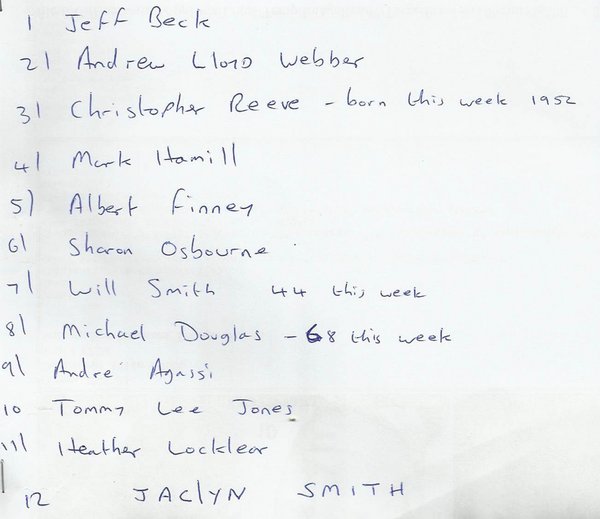 1 Jeff Beck
2) Andrew Lloyd Webber
3) Christopher Reeve - born this week 1952
4) Mark Hamill
5) Albert Finney
6) Sharon Osbourne
7) Will Smith 44 this week
8) Michael Douglas - 68 this week
9) Andre Agassi
10 Tommy Lee Jones
11) Heather Locklear
12 JAClYN SMITH